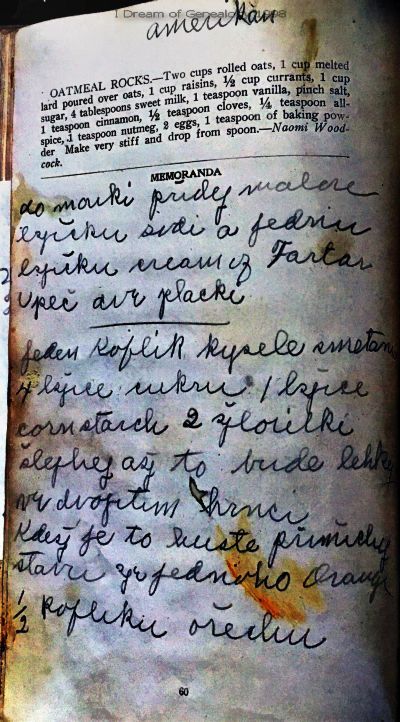 I Dream of Genealogy 1998
amerikan
OATMEAL ROCKS.—Two cups rolled oats, 1 cup melted
lard poured over oats, 1 cup raisins, ½ cup currants, 1 cup
sugar, 4 tablespoons sweet milk, 1 teaspoon vanilla, pinch salt,
1 teaspoon cinnamon, ½ teaspoon cloves, ¼ teaspoon all-
spice, 1 teaspoon nutmeg, 2 eggs, 1 teaspoon of baking pow-
der Make very stiff and drop from spoon.—Naomi Wood-
cock.
MEMORANDA
do mouki přidej malou
lyžičku sodi a jednu
lyžičku cream of Tartar
Upeč dvě placki
jeden koflik kysele smetani
4 lžice cukru 1 lžice
cornstarch 2 žloutki
šlehej až to bude lehke
v dvojitim hrnci
Kdež je to huste přimichej
štavu z jednoho Orange
½ kofliku ořechu
60